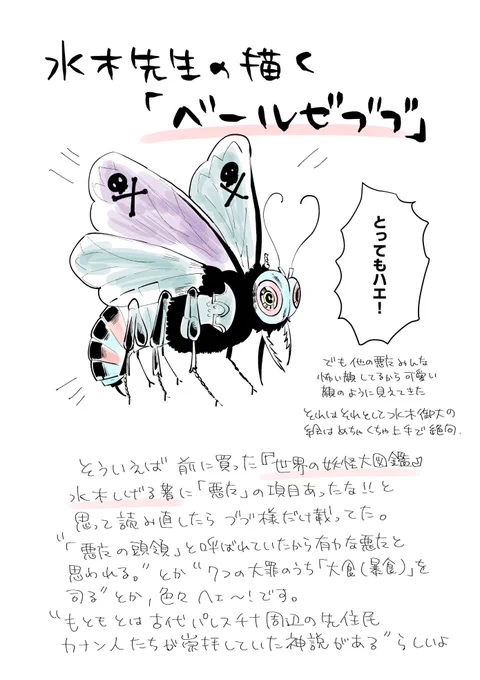 水木先生の描く
「ベールゼブブ」
とってもハエ!
でも他の悪魔みんな
怖い顔してるから可愛い
顔のように見えてきた
それはそれとして水木御大の
絵はめちゃくちゃ上手で絶句.
そういえば前に買った『世界の妖怪大図鑑』
水木しげる著に「悪魔」の項目あったな!!と
思って読み直したらブブ様だけ載ってた。
"「悪魔の頭領」と呼ばれていたから有力な悪魔と
思われる。"とか"7つの大罪のうち「大食(暴食)」を
司る"とか,色々ヘェ〜!です。
"もともとは古代パレスチナ周辺の先住民
カナン人たちが崇拝していた神説がある"らしいよ